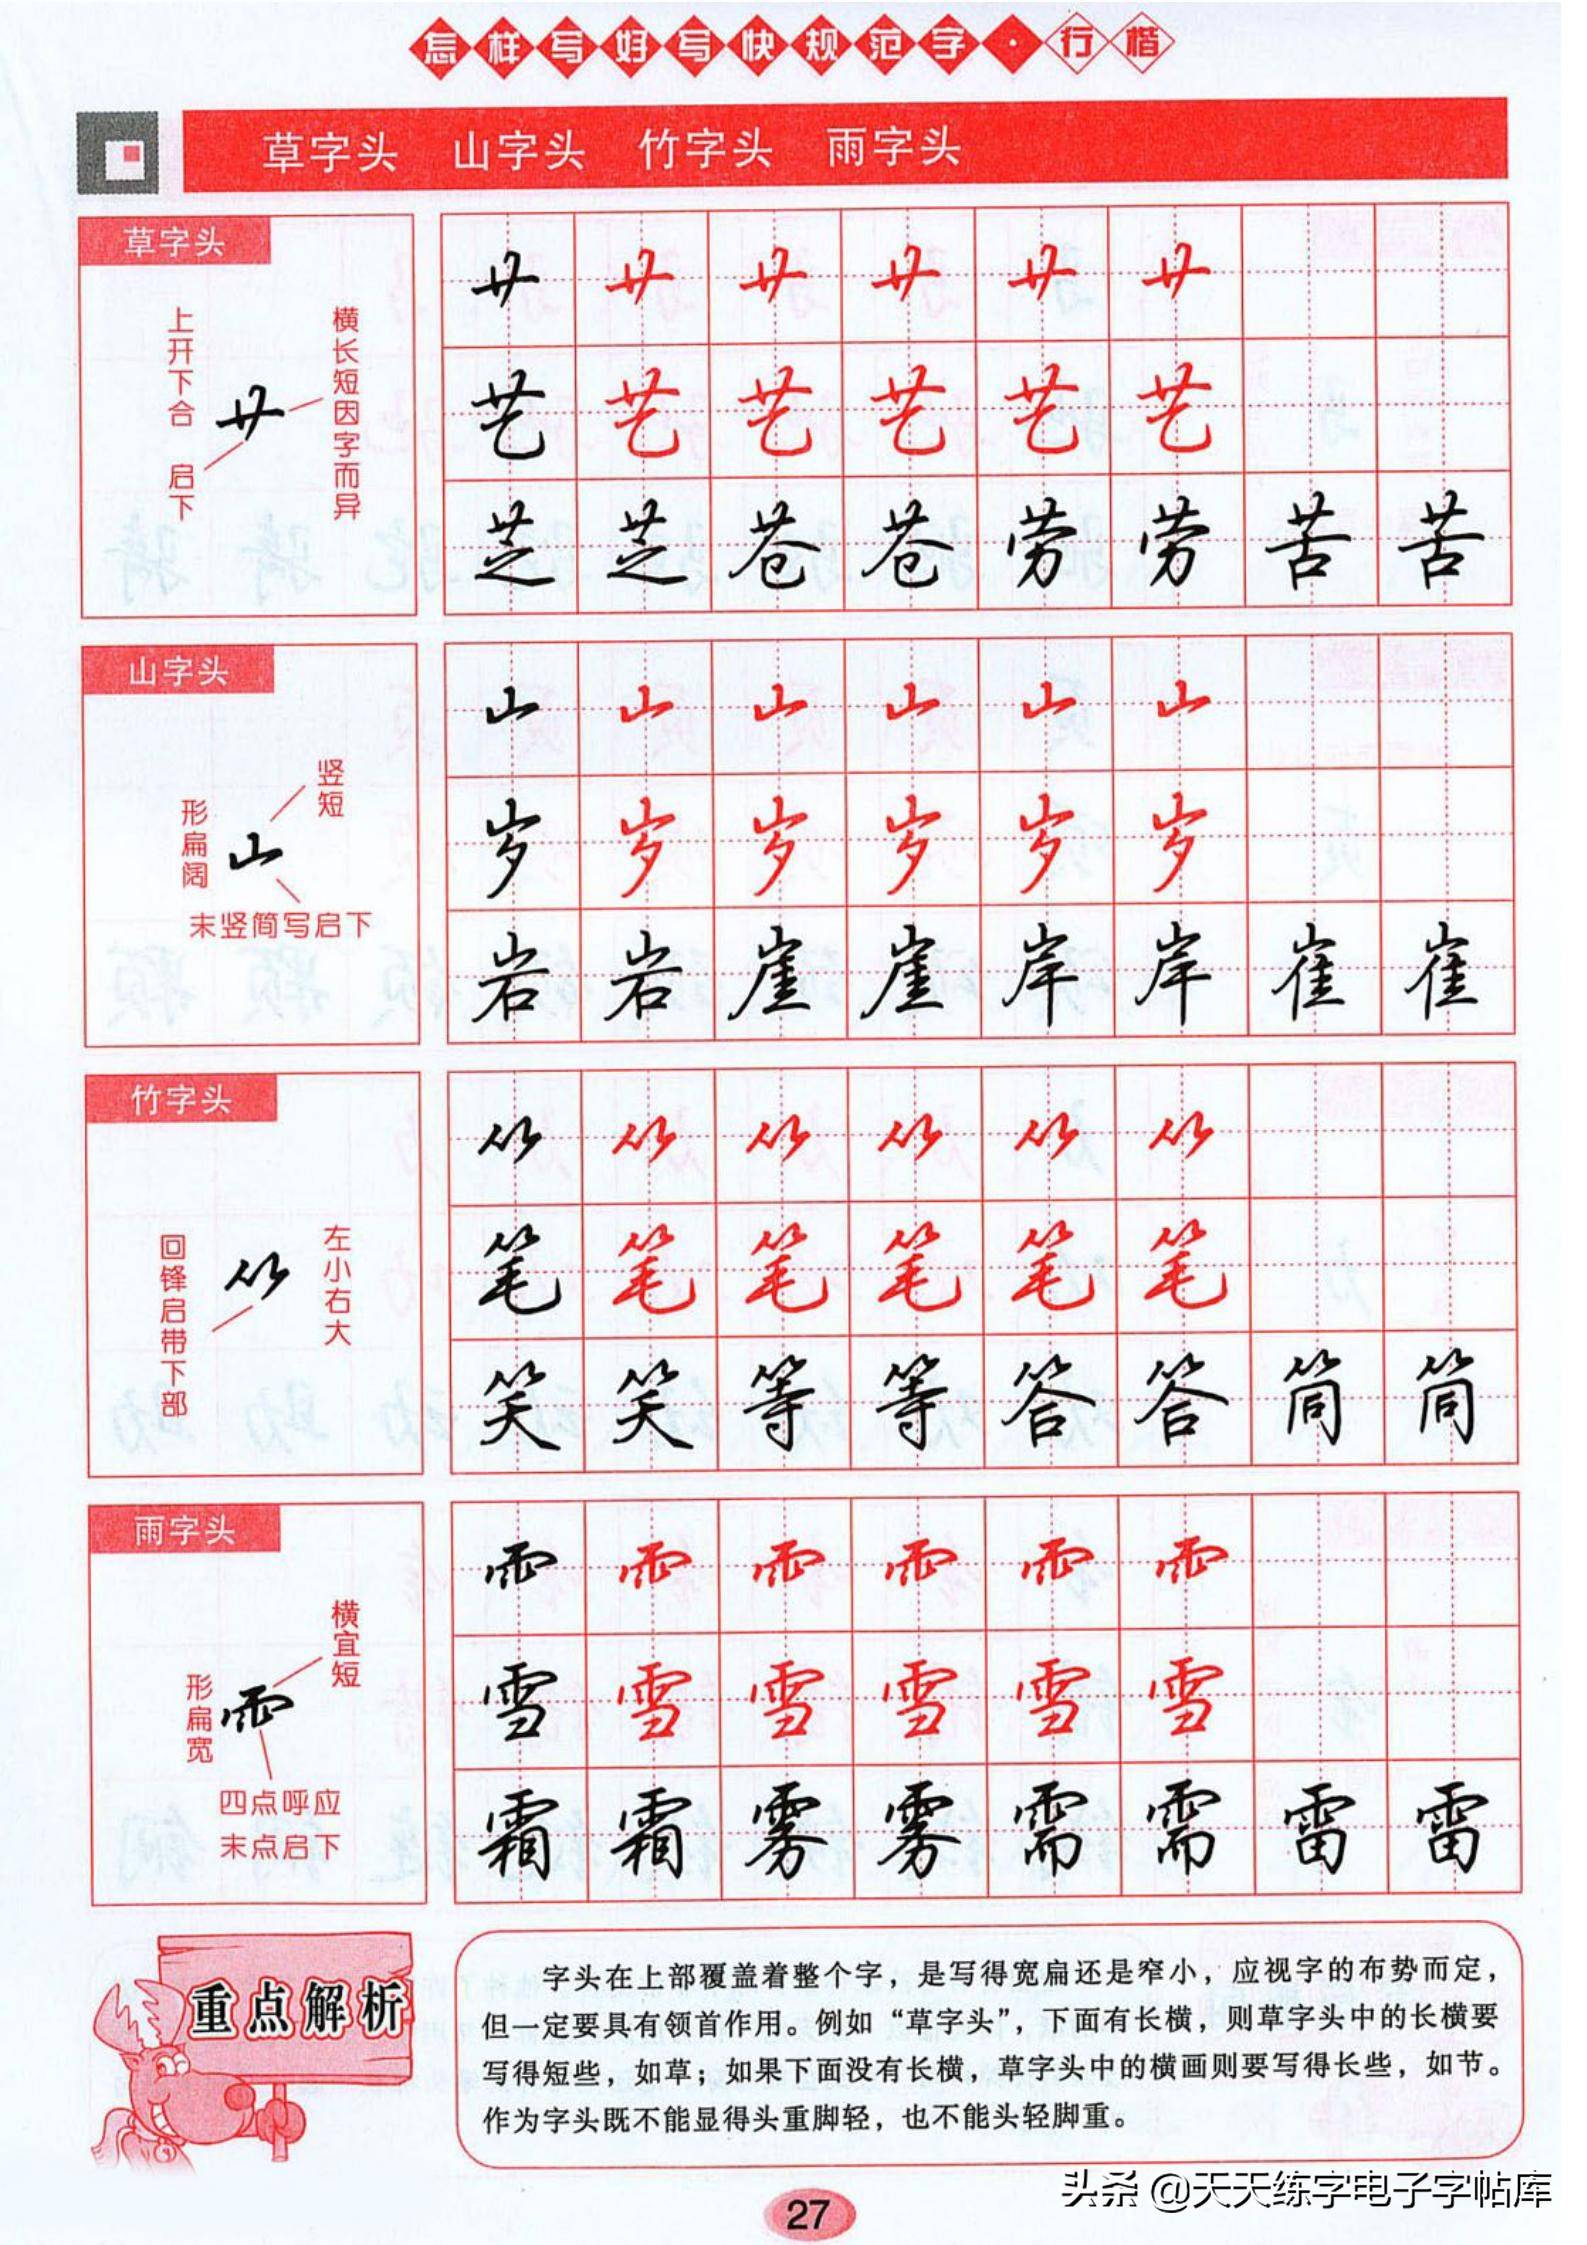 怎样写好写快规范字·行楷
草字头 山字头 竹字头 雨字头
草字头
上开下合
启下
横长短因字而异
艹 艹 艹 艹 艹 艹
艺 艺 艺 艺 艺 艺
芝 芝 苍 苍 劳 劳 苦 苦
山字头
竖短
形扁阔
末竖简写启下
山 山 山 山 山 山
岁 岁 岁 岁 岁 岁
岩 岩 崖 崖 岸 岸 崔 崔
竹字头
回锋启带下部
左小右大
⺮ ⺮ ⺮ ⺮ ⺮ ⺮
笔 笔 笔 笔 笔 笔
笑 笑 等 等 答 答 筒 筒
雨字头
横宜短
形扁宽
四点呼应
末点启下
⻗ ⻗ ⻗ ⻗ ⻗ ⻗
雪 雪 雪 雪 雪 雪
霜 霜 雾 雾 需 需 雷 雷
重点解析
字头在上部覆盖着整个字，是写得宽扁还是窄小，应视字的布势而定，
但一定要具有领首作用。例如“草字头”，下面有长横，则草字头中的长横要
写得短些，如草；如果下面没有长横，草字头中的横画则要写得长些，如节。
作为字头既不能显得头重脚轻，也不能头轻脚重。
27
头条 @天天练字电子字帖库